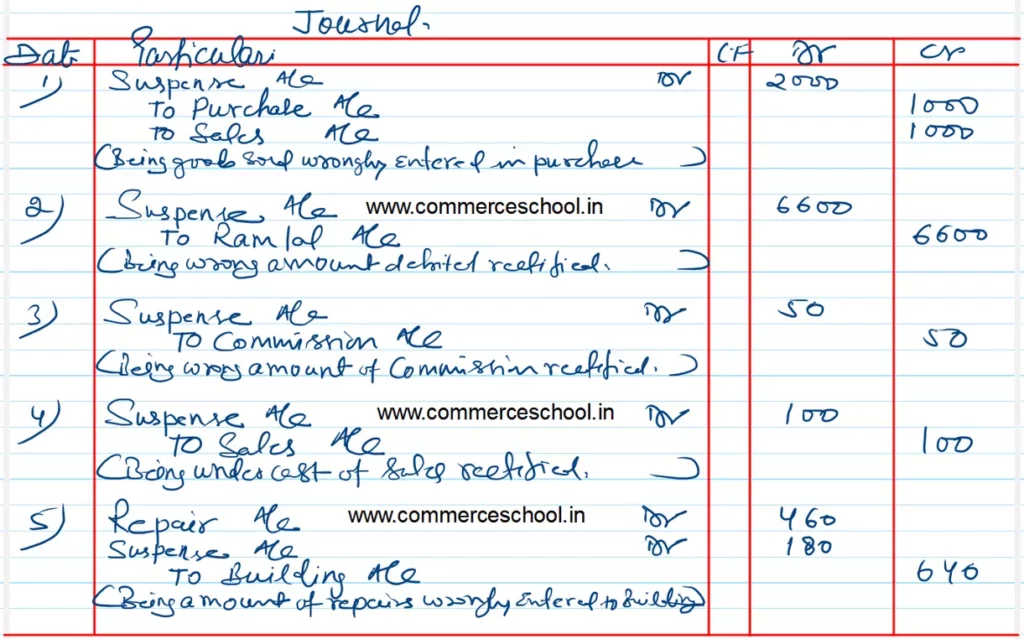 Journal.
Date Particulars LF Dr Cr
1) Suspense A/c Dr 2000
To Purchase A/c 1000
To Sales A/c 1000
(Being goods sold wrongly entered in purchase)
2) Suspense A/c www.commerceschool.in Dr 6600
To Ramlal A/c 6600
(Being wrong amount debited rectified.)
3) Suspense A/c Dr 50
To Commission A/c 50
(Being wrong amount of Commission rectified.)
4) Suspense A/c www.commerceschool.in Dr 100
To Sales A/c 100
(Being under cast of sales rectified.)
5) Repair A/c www.commerceschool.in Dr 460
Suspense A/c Dr 180
To Building A/c 640
(Being amount of repairs wrongly entered to Building)